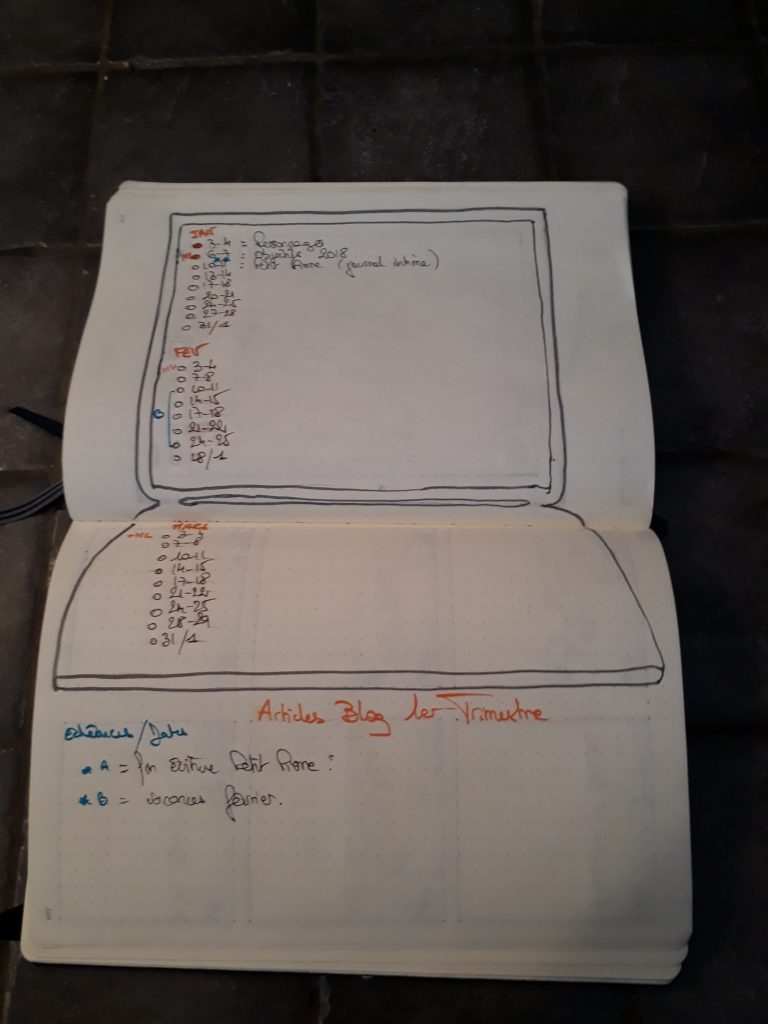 JAN
3-4 = Personnages
NL 6-7 = Objectifs 2018
10-11 : Petit Prome (journal intime)
13-14
17-18
20-21
24-25
27-28
31/1
FEV
NL 3-4
7-8
10-11
14-15
B 17-18
21-22
24-25
28/1
MARS
NL 3-4
7-8
10-11
14-15
17-18
21-22
24-25
28-29
31/1
Articles Blog 1er Trimestre
Echéances/Dates
* A = fin écriture Petit Prome ?
* B = vacances février.